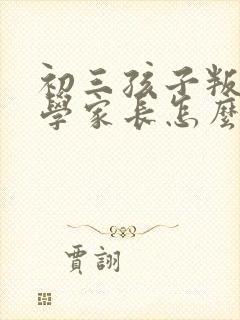 初三孩子叛
學家長怎麼
賈詡